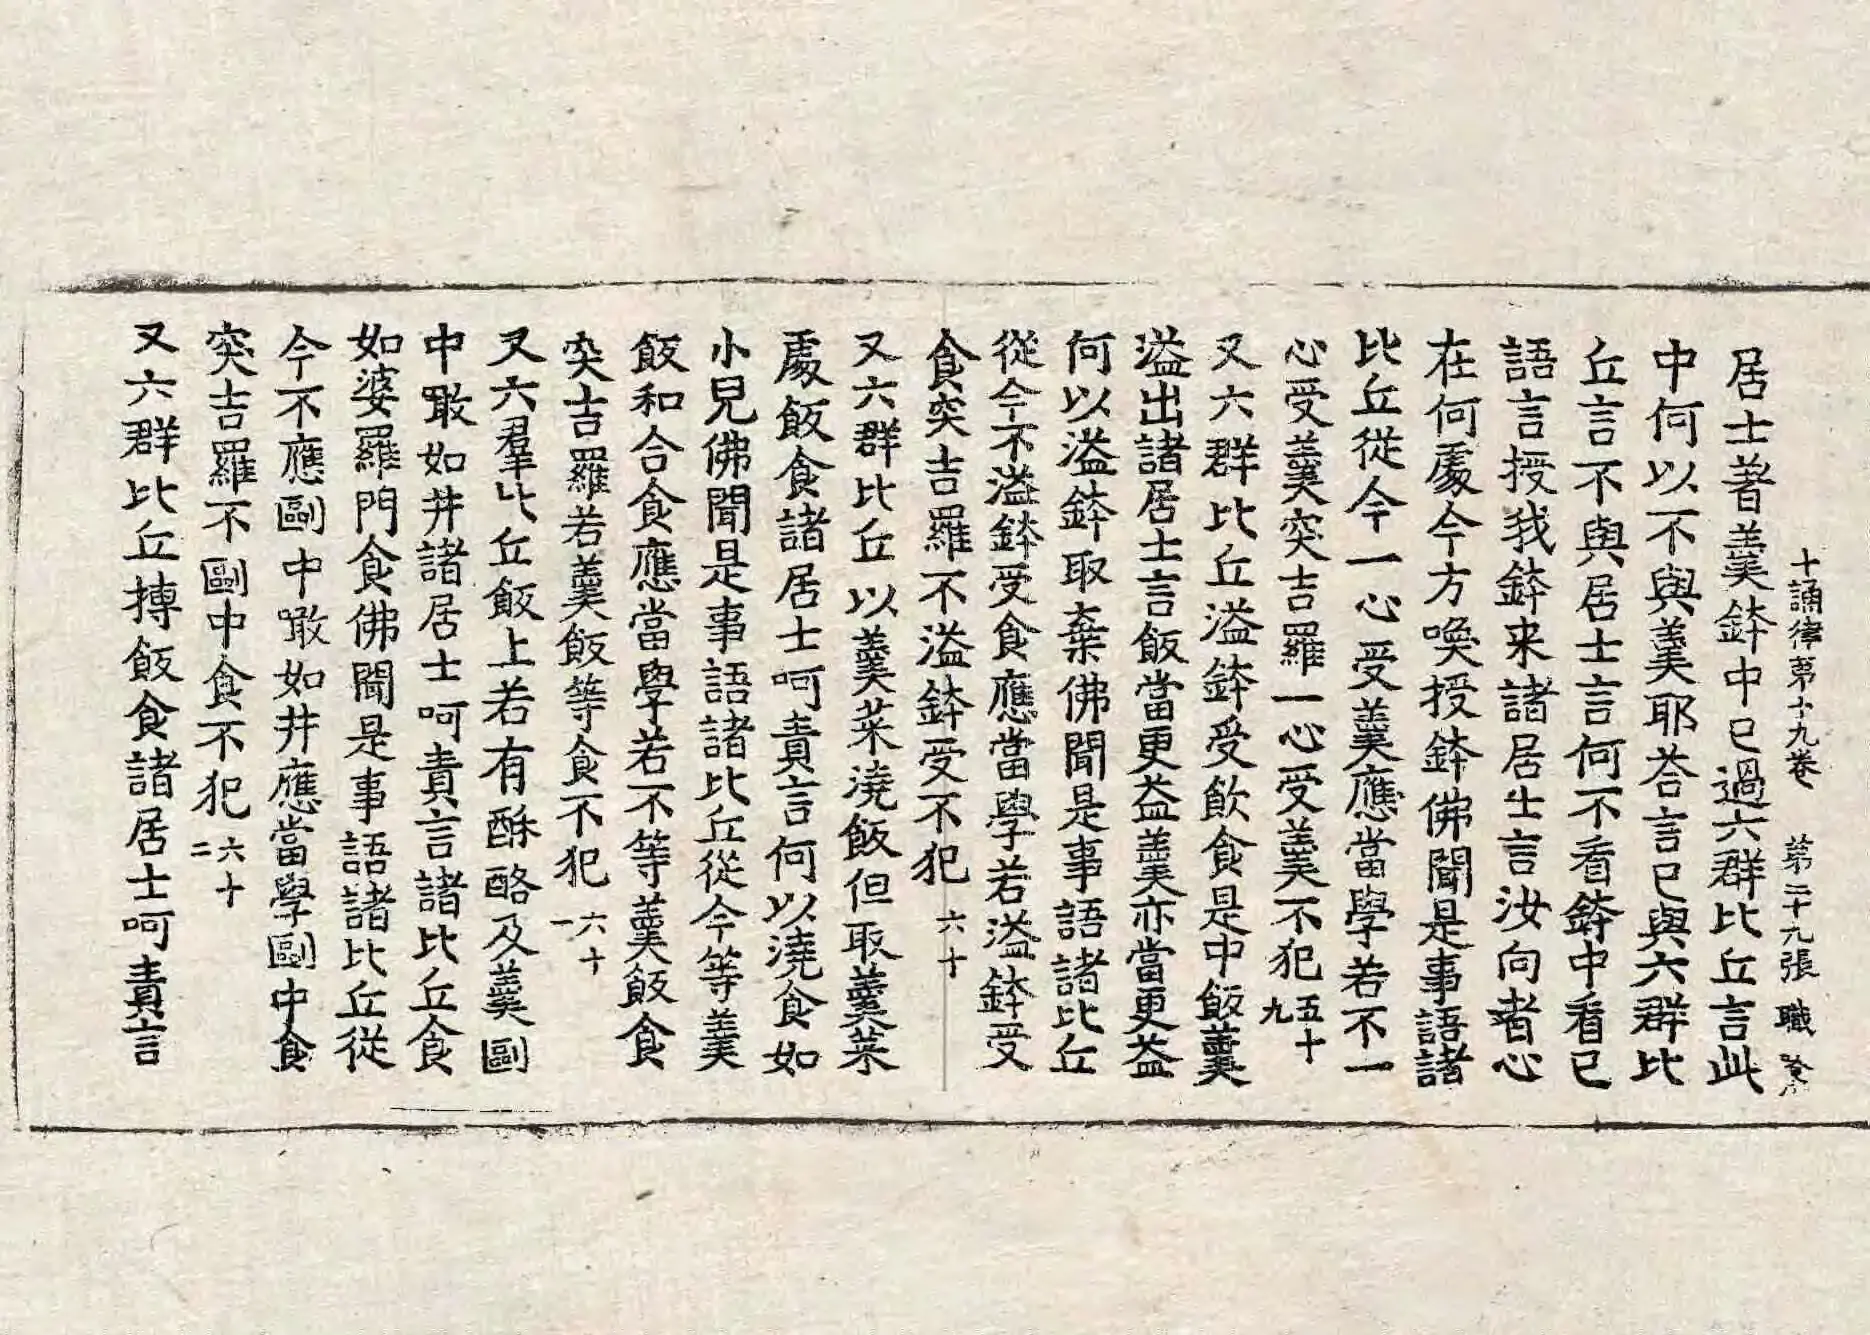 十誦律第十九卷　第二十九張　職
居士著羹鉢中已過六群比丘言此
中何以不與羹耶荅言已與六群比
丘言不與居士言何不看鉢中看已
語言授我鉢来諸居士言汝向者心
在何處今方喚授鉢佛聞是事語諸
比丘從今一心受羹應當學若不一
心受羹突吉羅一心受羹不犯五十九
又六群比丘溢鉢受飲食是中飯羹
溢出諸居士言飯當更益羹亦當更益
何以溢鉢取棄佛聞是事語諸比丘
從今不溢鉢受食應當學若溢鉢受
食突吉羅不溢鉢受不犯六十
又六群比丘以羹菜澆飯但取羹菜
處飯食諸居士呵責言何以澆食如
小兒佛聞是事語諸比丘從今等羹
飯和合食應當學若不等羹飯食
突吉羅若羹飯等食不犯六十一
又六羣比丘飯上若有酥酪及羹㓭
中噉如井諸居士呵責言諸比丘食
如婆羅門食佛聞是事語諸比丘從
今不應㓭中噉如井應當學㓭中食
突吉羅不㓭中食不犯六十二
又六群比丘摶飯食諸居士呵責言